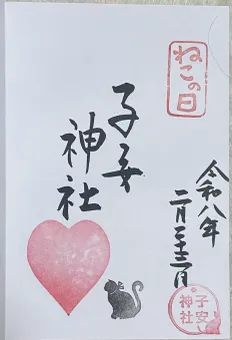 ねこの日
令和八年
二月二十二日
子安
神社
子安
神社